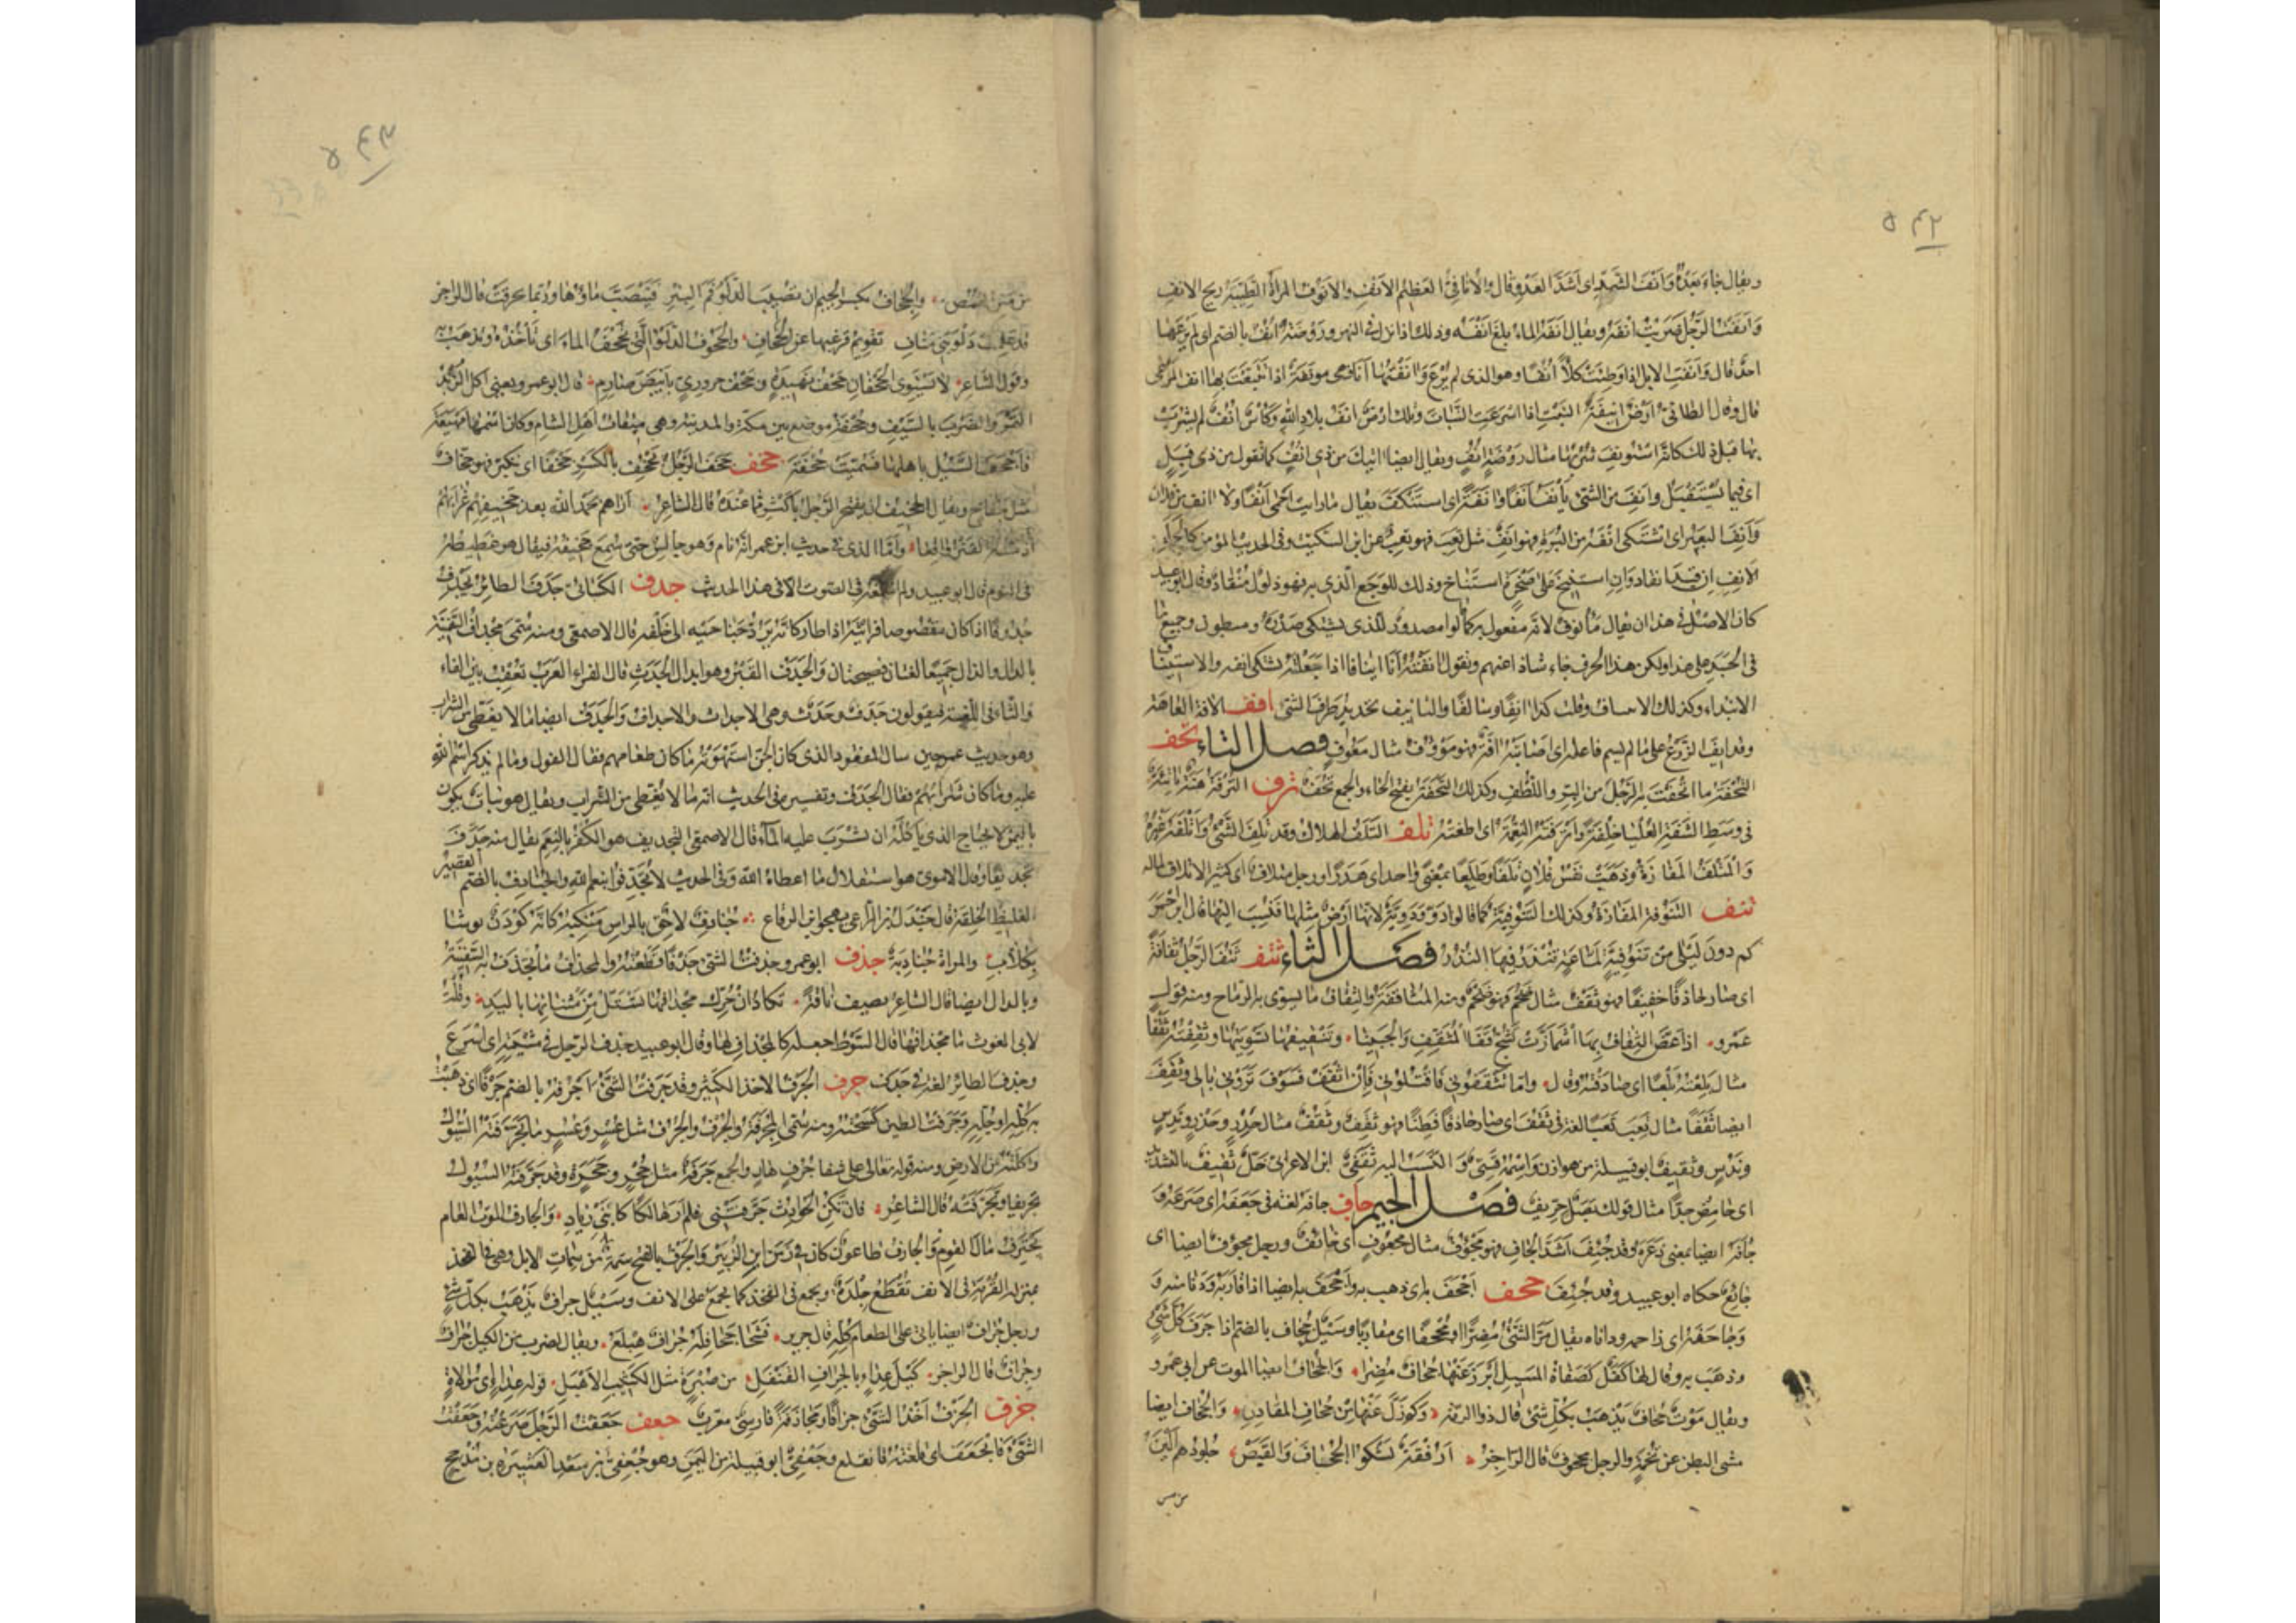 ۵۴۲
ويقال جاء يعدو انف الشد اى اشد العدو قال والانافى العظيم الانف والانوف المراة الطيبة ريح الانف
وانفت الرجل ضربت انفه ويقال انفه الماء بلغ انفه وذلك اذا نزل فى النهر وروضة انف بالضم اى لم يرعها
احد قال وانفت الابل اذا وطئت كلأ انفا وهو الذى لم يرع وانفتها انا فهى مونفة اذا تتبعت بها انف المرعى
قال وقال الطائى ارض انيفة النبت اذا اسرعت النبات وتلك ارض انف بلاد الله وكاس انف لم يشرب
بها قبل ذلك كانه استونف شربها مثال روضة انف ويقال ايضا اتيتك من ذى انف كما تقول من ذى قبل
اى فيما يستقبل وانف من الشئ يأنف انفا وانفة اى استنكف يقال ما رايت احمى انفا ولا آنف من فلان
وانف البعير اى اشتكى انفه من البرة فهو انف مثل تعب فهو تعب عن ابن السكيت وفى الحديث المؤمن كالجمل
الانف ان قيد انقاد وان استنيخ على صخرة استناخ وذلك للوجع الذى به فهو ذلول منقاد وقال ابو عبيد
كان الاصل فى هذا ان يقال مأنوف لانه مفعول به كما قالوا مصدور للذى يشتكى صدره ومبطون وجميع ما
فى الجسد على هذا ولكن هذا الحرف جاء شاذا عنهم وتقول آنفته انا اينافا اذا جعلته يشتكى انفه والاستيناف
الابتداء وكذلك الايتناف وقلت كذا آنفا وسالفا والتانيف تحديد طرف الشئ اوف الآفة العاهة
وقد ايف الزرع على ما لم يسم فاعله اى اصابته آفة فهو مؤوف مثال معوف فصل التاء تحف
التحفة ما اتحفت به الرجل من البر واللطف وكذلك التحفة بفتح الحاء والجمع تحف ترف الترفة هنة ناتئة
فى وسط الشفة العليا خلقة واترفته النعمة اى اطغته تلف التلف الهلاك وقد تلف الشئ واتلفه غيره
والمتلف المفازة وذهبت نفس فلان تلفا وطلفا بمعنى واحد اى هدرا ورجل متلاف اى كثير الاتلاف لماله
تنف التنوفة المفازة وكذلك التنوفية كما قالوا دو ودوية لانها ارض مثلها فنسبت اليها قال ابن احمر
كم دون ليلى من تنوفية لماعة تنذر فيها النذر فصل الثاء ثقف ثقف الرجل ثقافة
اى صار حاذقا خفيفا فهو ثقف مثال ضخم فهو ضخم ومنه المثاقفة والثقاف ما يسوى به الرماح ومنه قول
عمرو اذا عض الثقاف بها اشمأزت تشج قفا المثقف والجبينا وتثقيفها تسويتها وثقفته ثقفا
مثال بلعته بلعا اى صادفته وقال واما تثقفونى فاقتلونى فان اثقف فسوف ترون بالى وثقف
ايضا ثقفا مثال تعب تعبا لغة فى ثقف اى صار حاذقا فطنا فهو ثقف وثقف مثال حذر وحذر وندس
وندس وثقيف ابو قبيلة من هوازن واسمه قسى والنسب اليه ثقفى ابن الاعرابى خل ثقيف بالتشديد
اى حامض جدا مثال قولك بصل حريف فصل الجيم جاف جافه لغة فى جعفه اى صرعه و
جأفه ايضا بمعنى ذعره وقد جئف اشد الجأف فهو مجؤوف مثال مجعوف اى خائف ورجل مجؤوف ايضا اى
جائع حكاه ابو عبيد وقد جئف جحف اجحف به اى ذهب به واجحف به ايضا اذا قاربه ودنا منه و
وجاحفه اى زاحمه وداناه يقال مر الشئ مضرا او مجحفا اى مقاربا وسيل جحاف بالضم اذا جرف كل شئ
وذهب به وقال لها كفل كصفاة المسيل ابرز عنها جحاف مضر والجحاف ايضا الموت عن ابى عمرو
ويقال موت جحاف يذهب بكل شئ قال ذو الرمة وكم زل عنها من جحاف المقادر والجحاف ايضا
مشى البطن عن تخمة والرجل مجحوف قال الراجز ارفقة تشكو الجحاف والقبص جلودهم الين
من مس
۵۴۳
من مس القمص والجحاف بكسر الجيم ان تصيب الدلو فم البئر فينصب ماؤها وربما تخرقت قال الراجز
قد علمت دلو بنى مناف تقويم فرغيها عن الجحاف والجحوف الدلو التى تجحف الماء اى تأخذه وتذهب به
وقول الشاعر لا يستوى الجحفان جحف ثريدة وجحف حرورى بابيض صارم قال ابو عمرو يعنى اكل الزبد
بالتمر والضرب بالسيف وجحفة موضع بين مكة والمدينة وهى ميقات اهل الشام وكان اسمها مهيعة
فاجحف السيل باهلها فسميت جحفة جخف جخف الرجل يجخف بالكسر جخفا اى تكبر فهو جخاف
مثل جفاخ ويقال الجخيف ان يفتخر الرجل باكثر مما عنده قال الشاعر اراهم بحمد الله بعد جخيفهم غرابهم
اذ مسه الفتر واقعا واما الذى فى حديث ابن عمر انه نام وهو جالس حتى سمع جخيفه فيقال هو غطيطه
فى النوم قال ابو عبيد ولم اسمعه فى الصوت الا فى هذا الحديث جدف الكسائى جدف الطائر يجدف
جدوفا اذا كان مقصوصا فرايته اذا طار كانه يرد جناحيه الى خلفه قال الاصمعى ومنه سمى مجداف السفينة
بالدال والذال جميعا لغتان فصيحتان والجدف القبر وهو ابدال الجدث قال الفراء العرب تعقب بين الفاء
والثاء فى اللغة فيقولون جدف وجدث وهى الاجداث والاجداف والجدف ايضا ما لا يغطى من الشراب
وهو حديث عمر حين سال المفقود الذى كان الجن استهوته ما كان طعامهم فقال الفول وما لم يذكر اسم الله
عليه وما كان شرابهم فقال الجدف وتفسيره فى الحديث انه ما لا يغطى من الشراب ويقال هو نبات يكون
باليمن لا يحتاج الذى يأكله ان يشرب عليه الماء قال الاصمعى التجديف هو الكفر بالنعم يقال منه جدف
تجديفا وقال الاموى هو استقلال ما اعطاه الله وفى الحديث لا تجدفوا بنعم الله والجنادف بالضم القصير
الغليظ الخلقة قال جندل بن الراعى يهجو ابن الرقاع جنادف لاحق بالراس منكبه كانه كودن يوشا
بكلاب والمراة جنادفة جذف ابو عمرو جذفت الشئ جذفا قطعته والمجذاف ما تجذف به السفينة
وبالدال ايضا قال الشاعر يصف ناقة تكاد ان حرك مجذافها تستل من مثناتها باليد وقلت
لابى الغوث ما مجذافها قال السوط جعله كالمجذاف لها وقال ابو عبيد جذف الرجل فى مشيته اى اسرع
وجذف الطائر لغة فى جدف جرف الجرف الاخذ الكثير وقد جرفت الشئ اجرفه بالضم جرفا اى ذهبت
به كله او جله وجرفت الطين كسحته ومنه سمى المجرفة والجرف والجرف مثل عسر وعسر ما تجرفته السيول
واكلته من الارض ومنه قوله تعالى على شفا جرف هار والجمع جرفة مثل جحر وجحرة وقد جرفته السيول
تجريفا وتجرفته قال الشاعر فان تكن الحوادث جرفتنى فلم ار هالكا كابنى زياد والجارف الموت العام
يجترف مال القوم والجارف طاعون كان فى زمن ابن الزبير والجرف بالفتح سمة من سمات الابل وهى فى الفخذ
بمنزلة القرمة فى الانف تقطع جلدة وتجمع فى الفخذ كما تجمع على الانف وسيل جراف يذهب بكل شئ
ورجل جراف ايضا ياتى على الطعام كله قال جرير فشحا جحافله جراف هبلع ويقال لضرب من الكيل جراف
وجراف قال الراجز كيل عداء بالجراف القنقل من صبرة مثل الكثيب الاهيل قوله عداء اى موالاة
جزف الجزف اخذ الشئ جزافا ومجازفة فارسى معرب جعف جعفت الرجل صرعته وجعفت
الشئ فانجعف اى قلعته فانقلع وجعفى ابو قبيلة من اليمن وهو جعفى بن سعد العشيرة بن مذحج